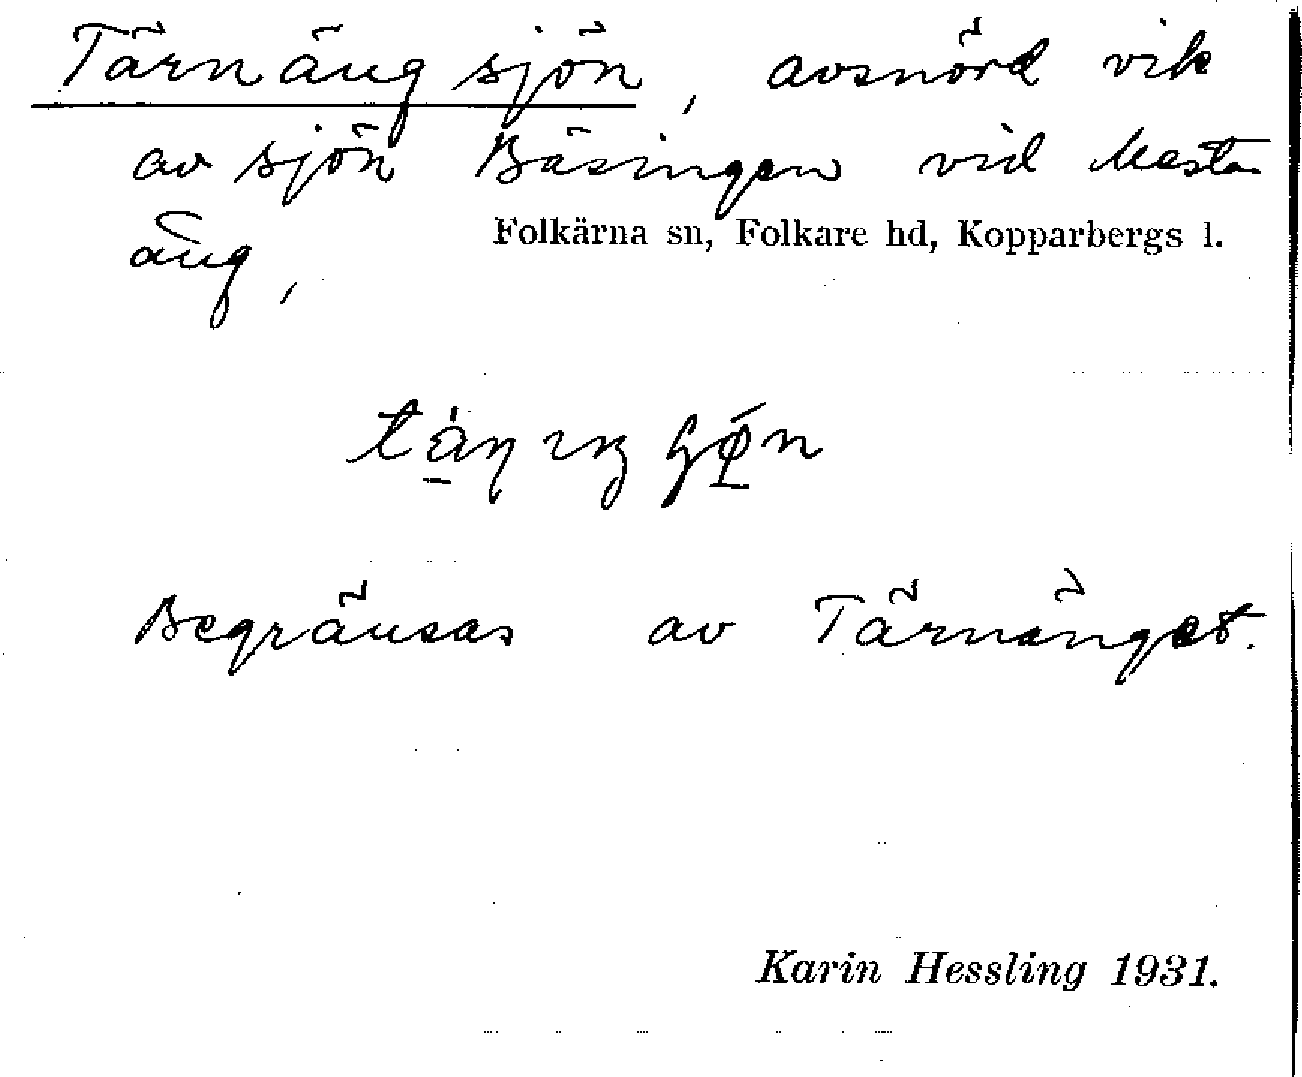 Tärnängsjön, avsnörd vik
av sjön Bäsingen vid Mesta
äng,
Folkärna sn, Folkare hd, Kopparbergs l.
Begränsas av Tärnänget.
Karin Hessling 1931.